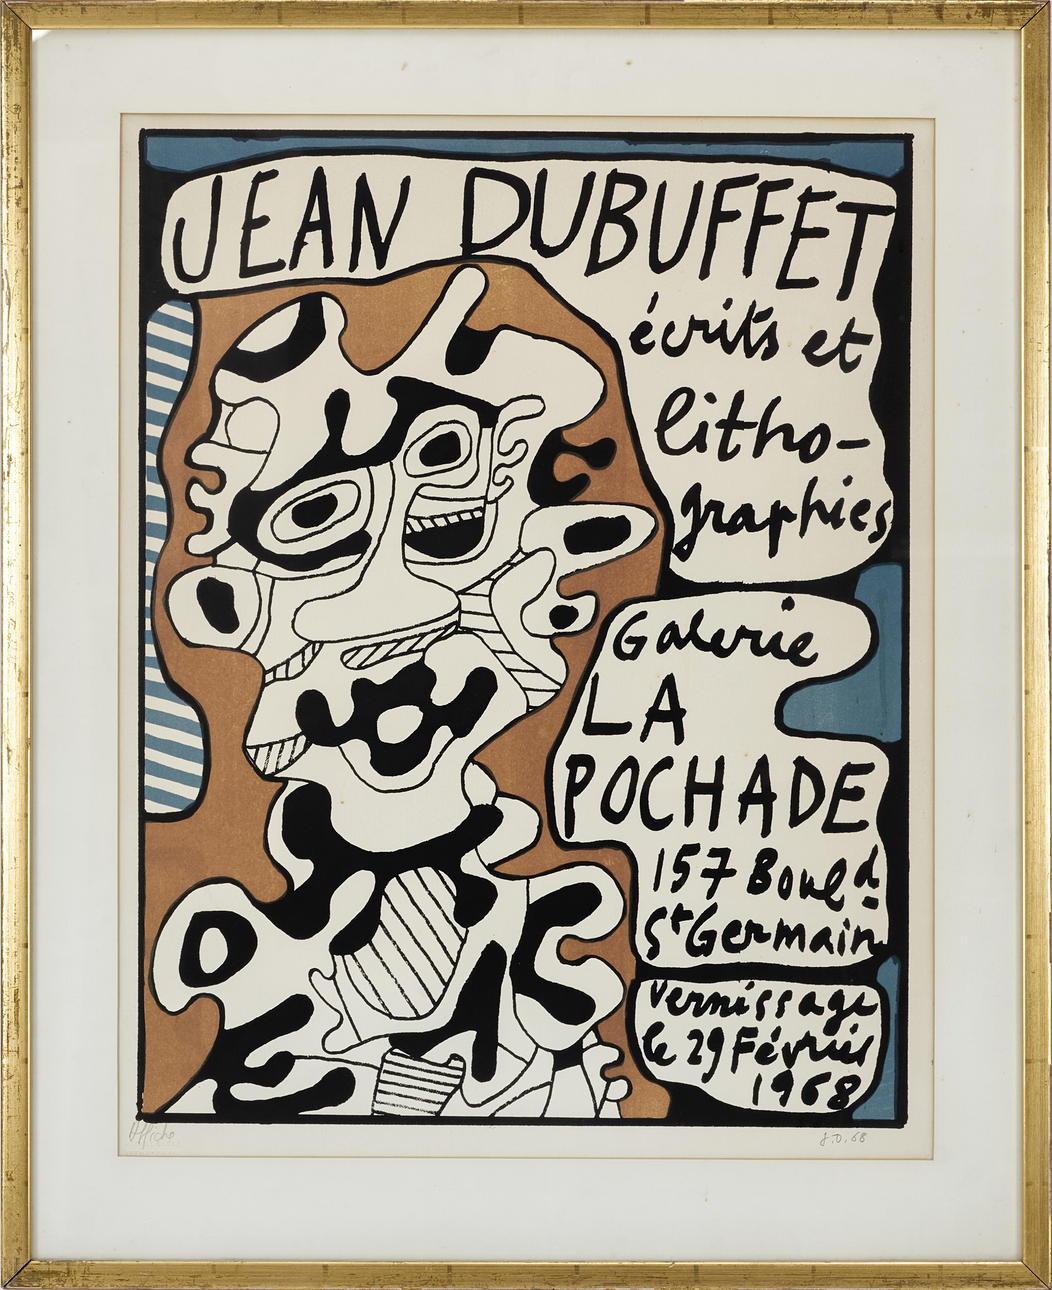 JEAN DUBUFFET
écrits et
litho-
graphies
Galerie
LA
POCHADE
157 Bould
St Germain
Vernissage
le 29 Février
1968
Affiche
J.D. 68